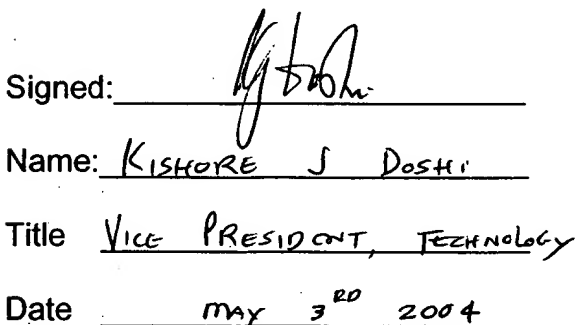 Signed: KJ Doshi
Name: KISHORE J DOSHI
Title VICE PRESIDENT, TECHNOLOGY
Date MAY 3RD 2004